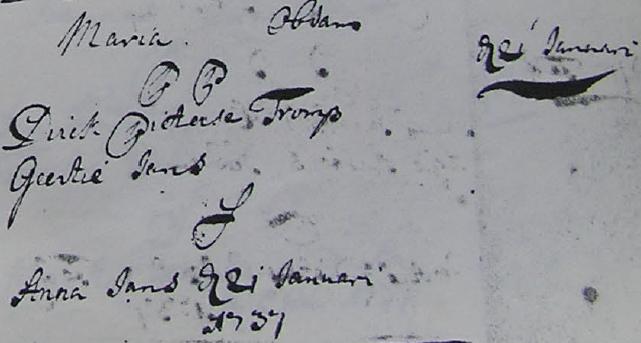 Maria. Obdam
d 21 Januari
P P
Dirk Pieterse Tromp
Geertie Jans
S
Anna Jans d 21 Januari
1737